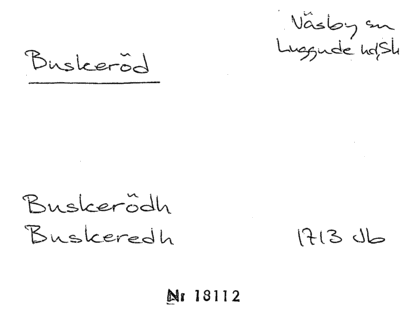 Buskeröd
Väsby sn
Luggude hd, Sk
Buskerödh
Buskeredh 1713 Jb
Nr 18112